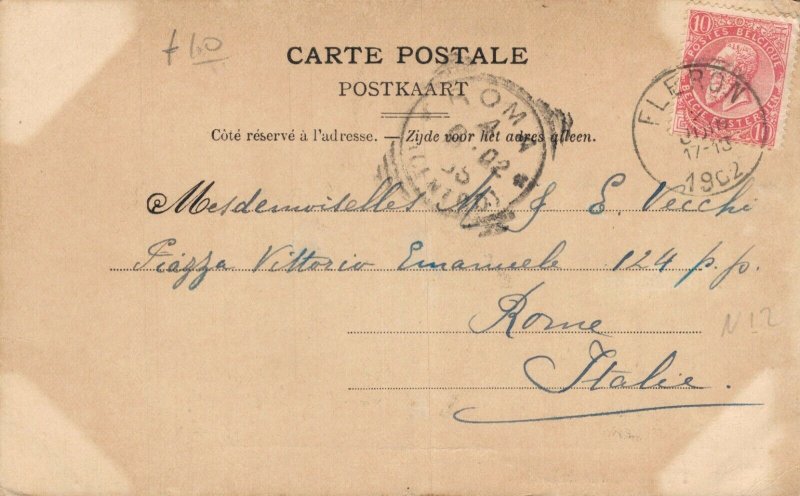 £40
CARTE POSTALE
POSTKAART
Côté réservé à l'adresse. — Zijde voor het adres alleen.
10
POSTES BELGIQUE
BELGIE POSTERIJEN
10
FLERON
17-18
1902
ROMA
02
Mesdemoiselles M J E. Vecchi
Piazza Vittorio Emanuele 124 p.p.
Rome
N12
Italie.